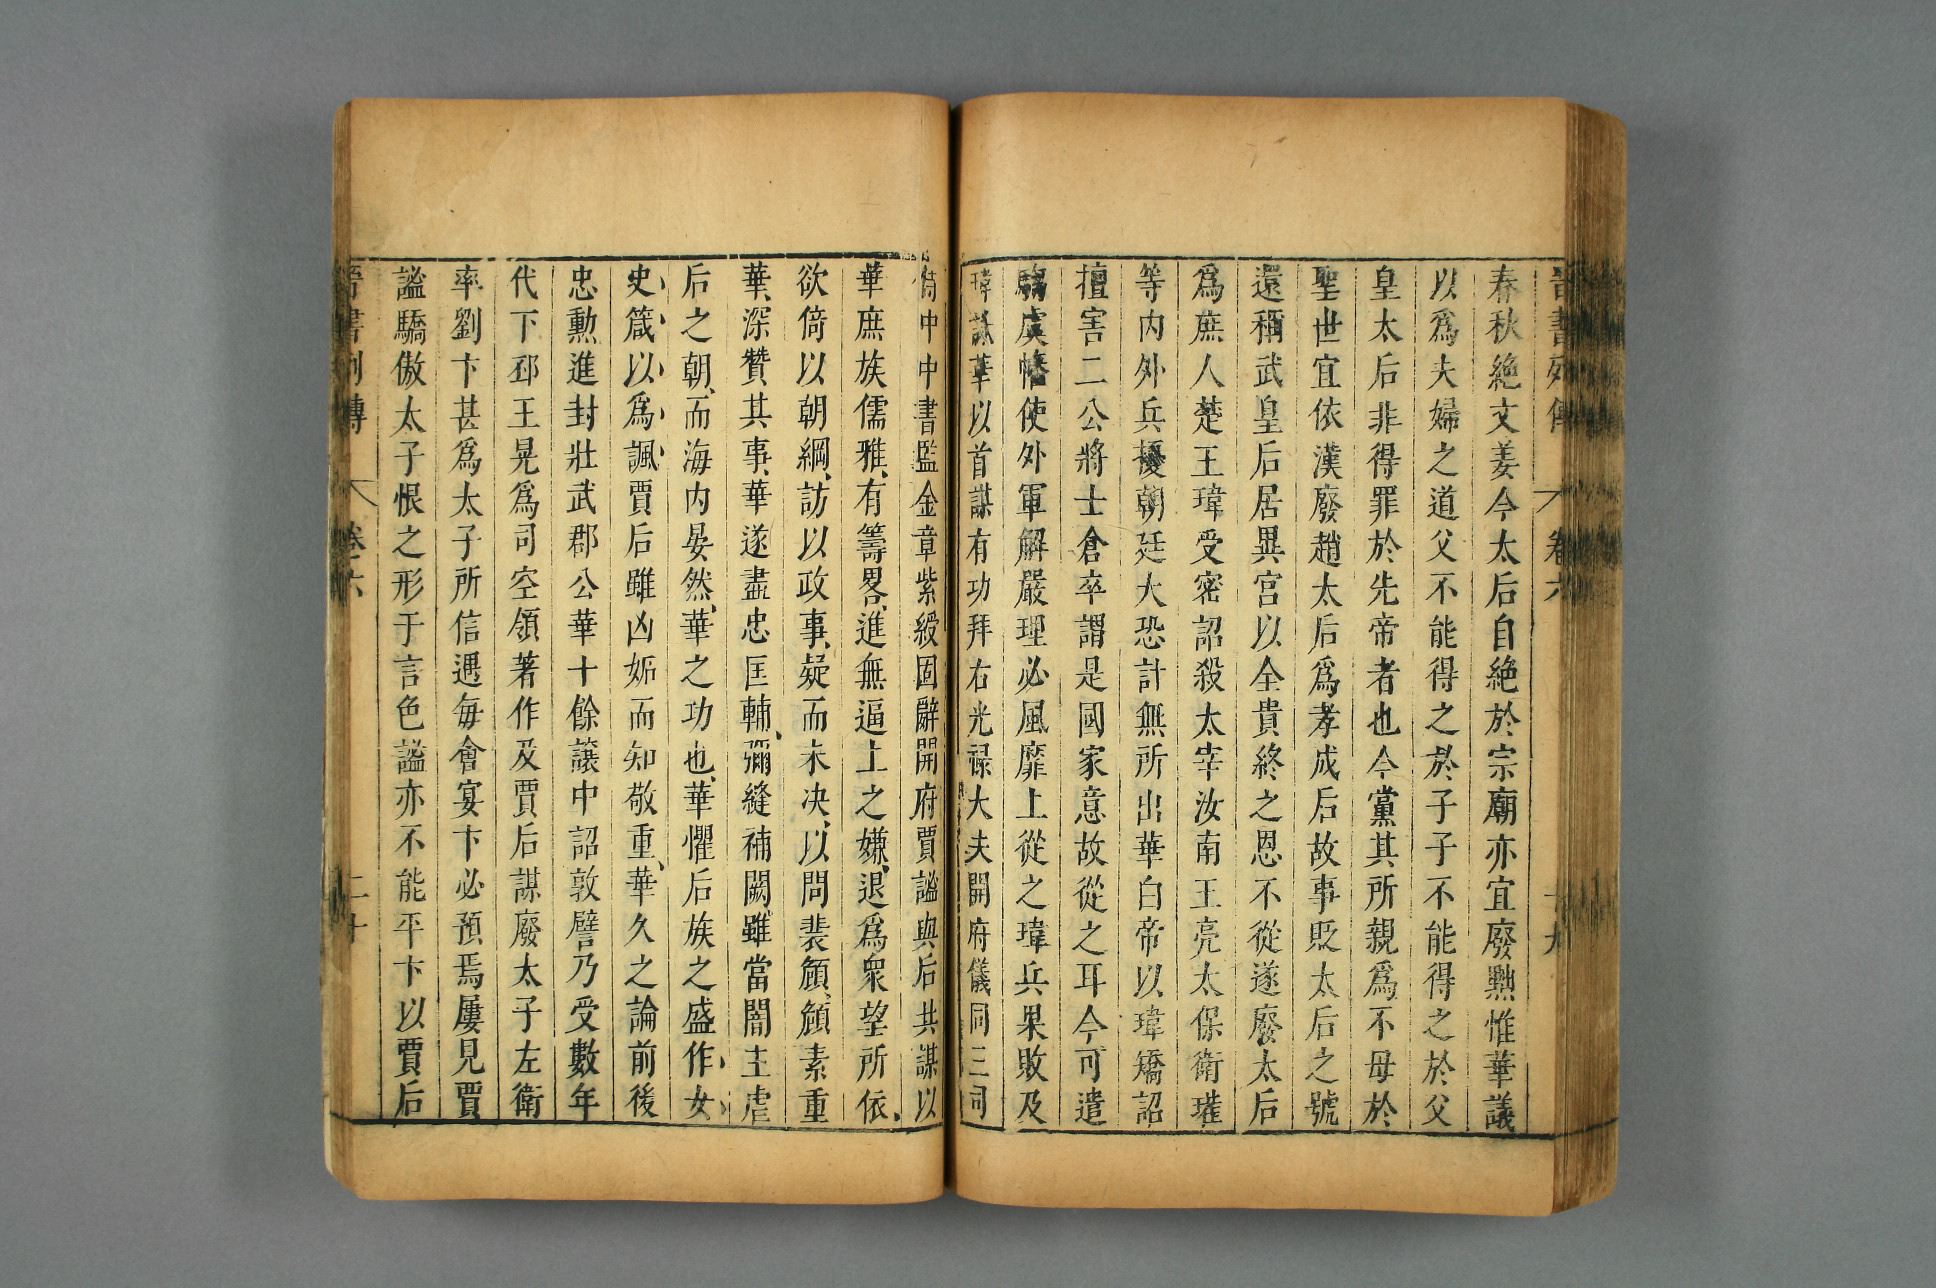 晉書列傳 卷六 十九
春秋絶文姜今太后自絶於宗廟亦宜廢黜惟華議
以爲夫婦之道父不能得之於子子不能得之於父
皇太后非得罪於先帝者也今黨其所親爲不母於
聖世宜依漢廢趙太后爲孝成后故事貶太后之號
還稱武皇后居異宮以全貴終之恩不從遂廢太后
爲庶人楚王瑋受密詔殺太宰汝南王亮太保衛瓘
等内外兵擾朝廷大恐計無所出華白帝以瑋矯詔
擅害二公將士倉卒謂是國家意故從之耳今可遣
騶虞幡使外軍解嚴理必風靡上從之瑋兵果敗及
瑋誅華以首謀有功拜右光禄大夫開府儀同三司
侍中中書監金章紫綬固辭開府賈謐與后共謀以
華庶族儒雅有籌畧進無逼上之嫌退爲衆望所依
欲倚以朝綱訪以政事疑而未决以問裴頠頠素重
華深贊其事華遂盡忠匡輔彌縫補闕雖當闇主虐
后之朝而海内晏然華之功也華懼后族之盛作女
史箴以爲諷賈后雖凶妬而知敬重華久之論前後
忠勲進封壯武郡公華十餘讓中詔敦譬乃受數年
代下邳王晃爲司空領著作及賈后謀廢太子左衛
率劉卞甚爲太子所信遇每會宴卞必預焉屢見賈
謐驕傲太子恨之形于言色謐亦不能平卞以賈后
晉書列傳 卷六 二十